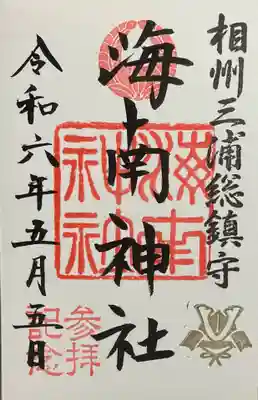 相州三浦総鎮守
海南神社
令和六年五月五日
海南神社
参拝
記念